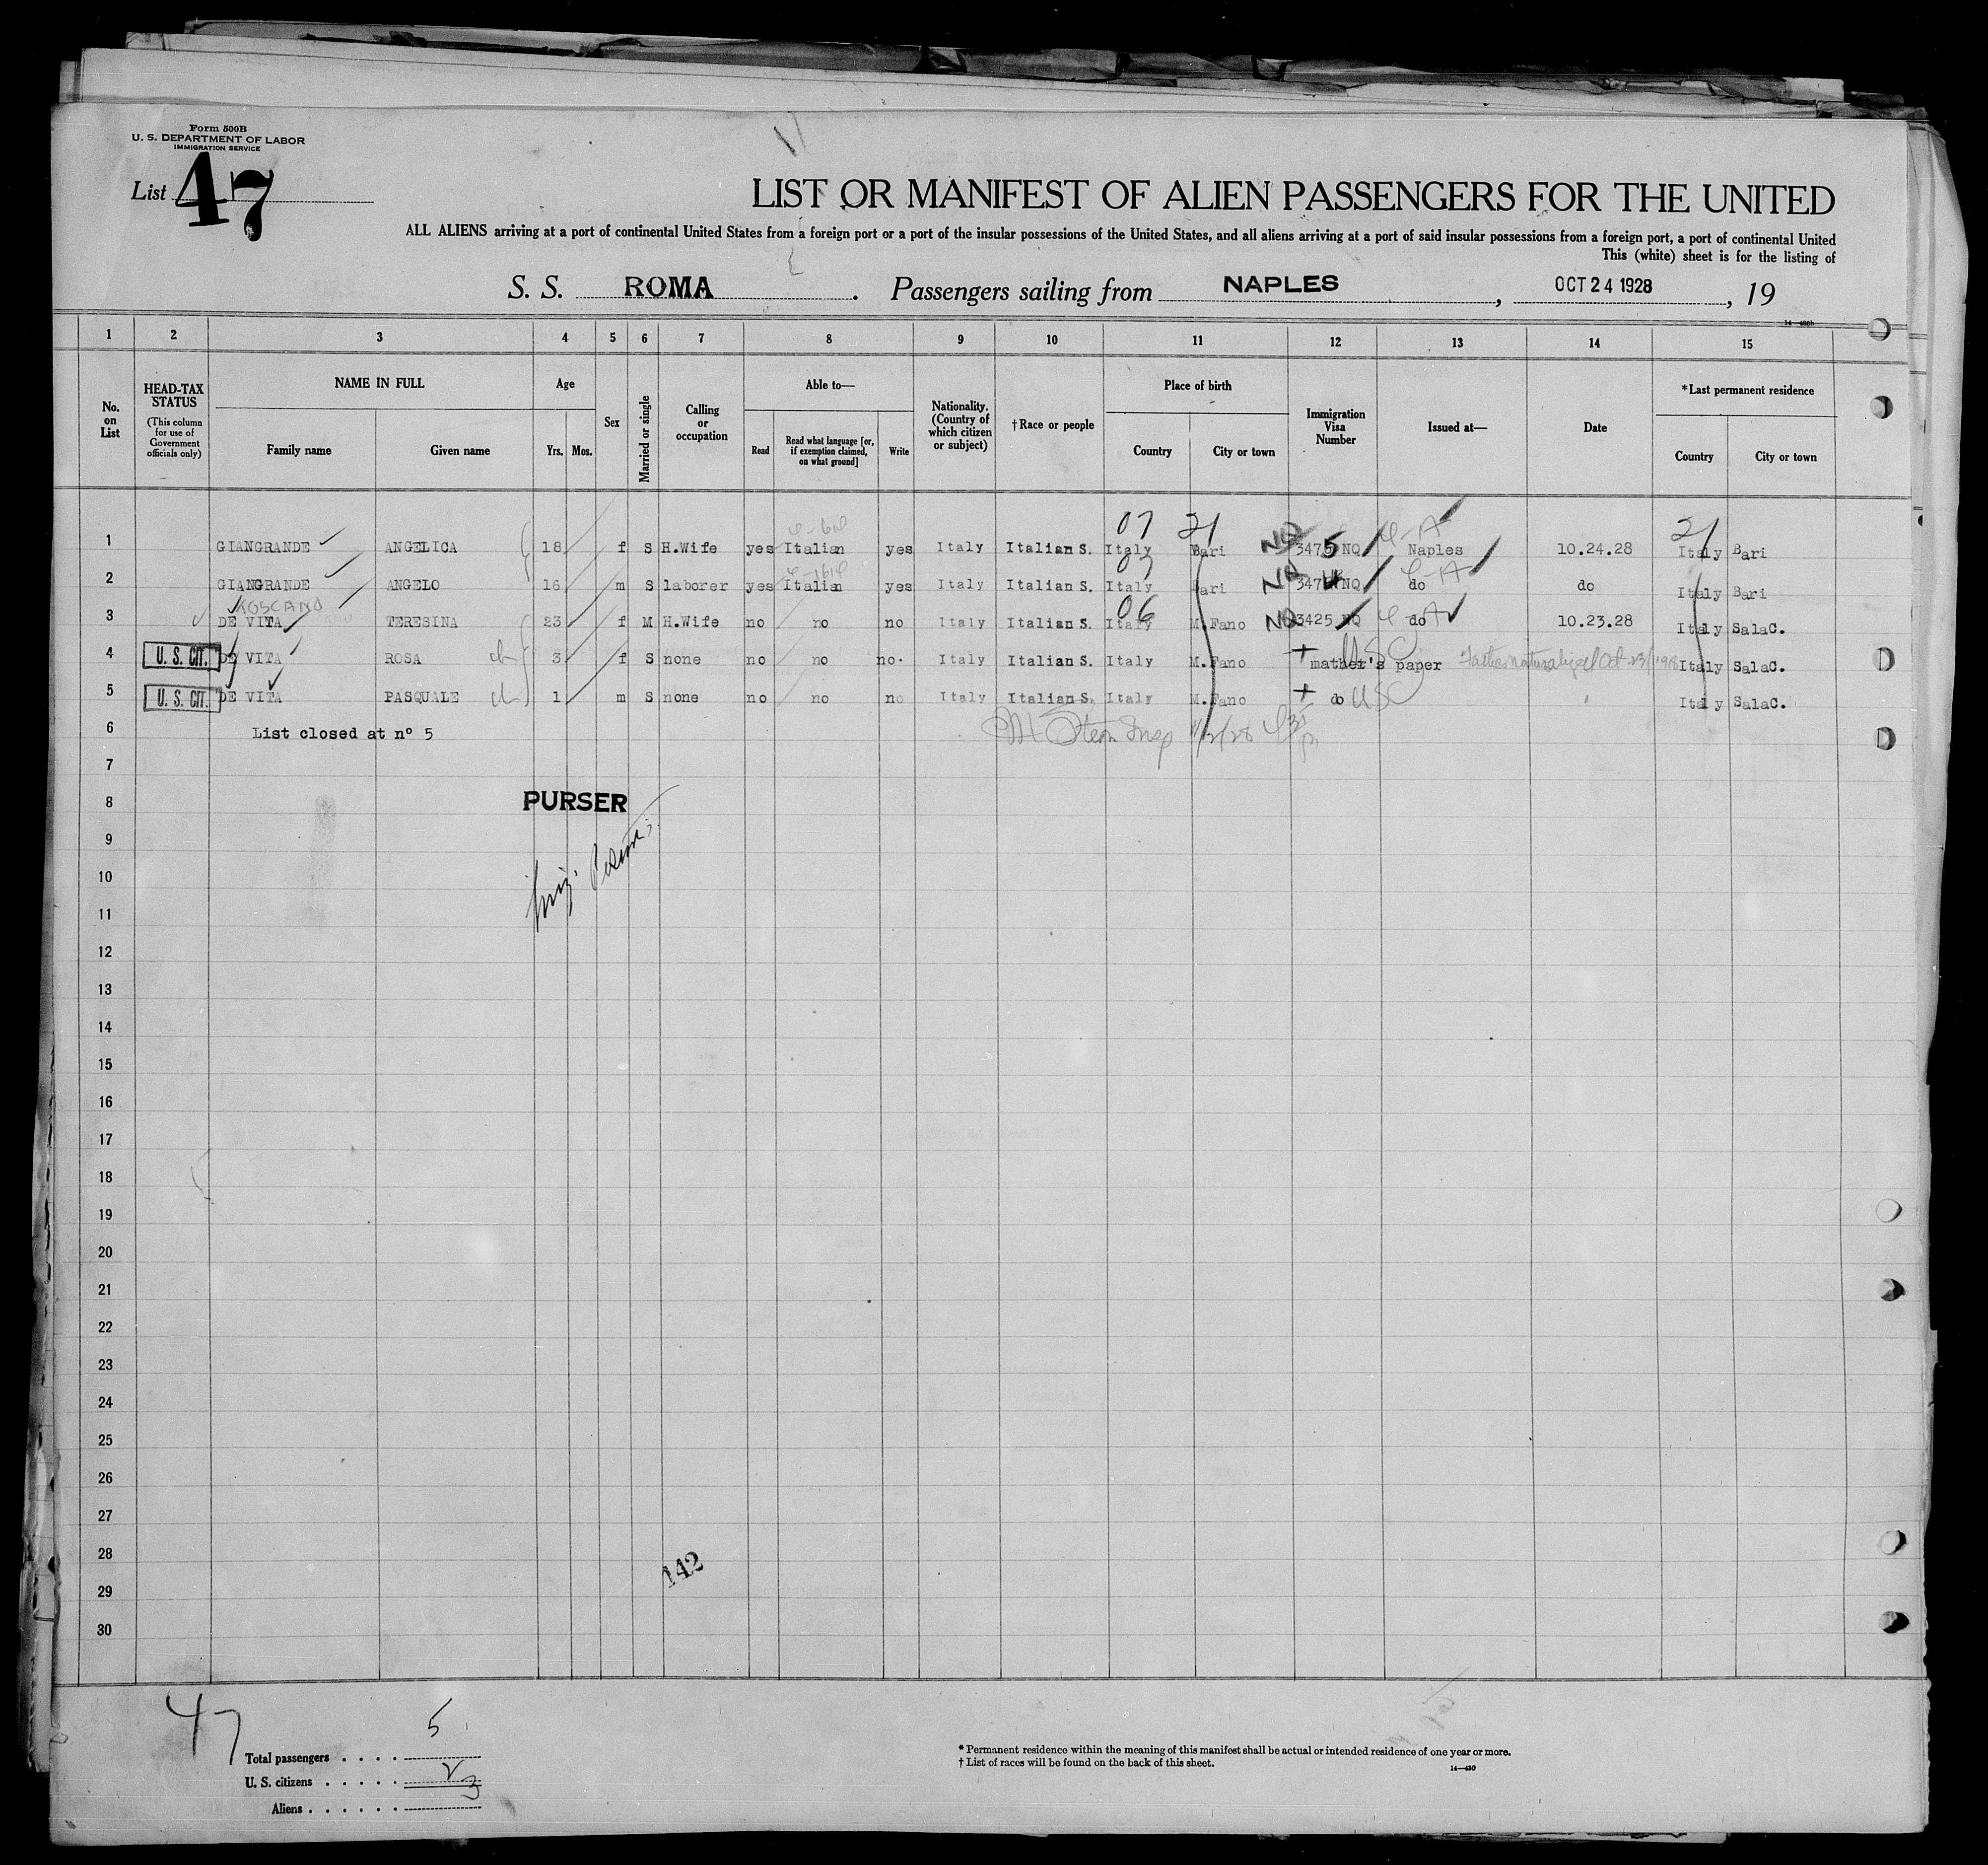 Form 500B
U. S. DEPARTMENT OF LABOR
IMMIGRATION SERVICE
List 47
LIST OR MANIFEST OF ALIEN PASSENGERS FOR THE UNITED
ALL ALIENS arriving at a port of continental United States from a foreign port or a port of the insular possessions of the United States, and all aliens arriving at a port of said insular possessions from a foreign port, a port of continental United
This (white) sheet is for the listing of
S. S. ROMA. Passengers sailing from NAPLES, OCT 24 1928, 19
1 2 3 4 5 6 7 8 9 10 11 12 13 14 15
No. on List
HEAD-TAX STATUS
(This column for use of Government officials only)
NAME IN FULL
Family name Given name
Age
Yrs. Mos.
Sex
Married or single
Calling or occupation
Able to—
Read Read what language [or, if exemption claimed, on what ground] Write
Nationality. (Country of which citizen or subject)
†Race or people
Place of birth
Country City or town
Immigration Visa Number
Issued at—
Date
*Last permanent residence
Country City or town
07 21 21
1 GIANGRANDE ANGELICA 18 f S H.Wife yes Italian yes Italy Italian S. Italy Bari NQ 3475 NQ Naples 10.24.28 Italy Bari
07
2 GIANGRANDE ANGELO 16 m S laborer yes Italian yes Italy Italian S. Italy Bari NQ NQ do do Italy Bari
06
3 DE VITA TERESINA 23 f M H.Wife no no no Italy Italian S. Italy M.Fano NQ 3425 NQ do 10.23.28 Italy SalaC.
4 U. S. CIT. DE VITA ROSA 3 f S none no no no. Italy Italian S. Italy M.Fano + mather's paper USC Father naturalized Oct 23/1918 Italy SalaC.
5 U. S. CIT. DE VITA PASQUALE 1 m S none no no no Italy Italian S. Italy M.Fano + do USC Italy SalaC.
6 List closed at nº 5
7
8 PURSER
9
10
11
12
13
14
15
16
17
18
19
20
21
22
23
24
25
26
27
28
142
29
30
47
Total passengers . . . . 5
U. S. citizens . . . . . 2
Aliens . . . . . . 3
* Permanent residence within the meaning of this manifest shall be actual or intended residence of one year or more.
† List of races will be found on the back of this sheet.
14—430